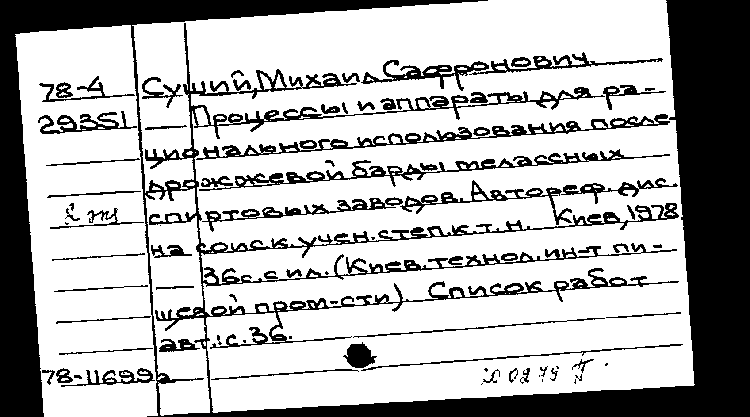 78-4 Сущий, Михаил Сафронович.
29351 Процессы и аппараты для ра-
ционального использования после-
дрожжевой барды мелассных
2 экз спиртовых заводов. Автореф. дис.
на соиск. учен. степ. к. т. н. Киев, 1978
36 с. с ил. (Киев. технол. ин-т пи-
щевой пром-сти). Список работ
авт.: с. 36.
78-11699а